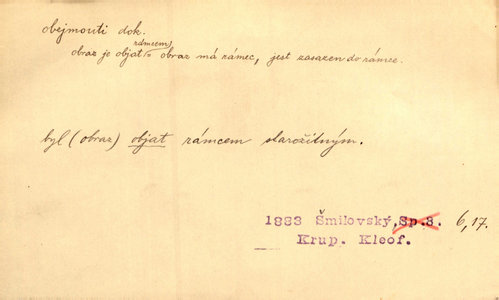 obejmouti dok.
rámcem
obraz je objat = obraz má rámec, jest zasazen do rámce.
byl (obraz) objat rámcem starožitným.
1883 Šmilovský, Sp.3. 6,17.
Krup. Kleof.